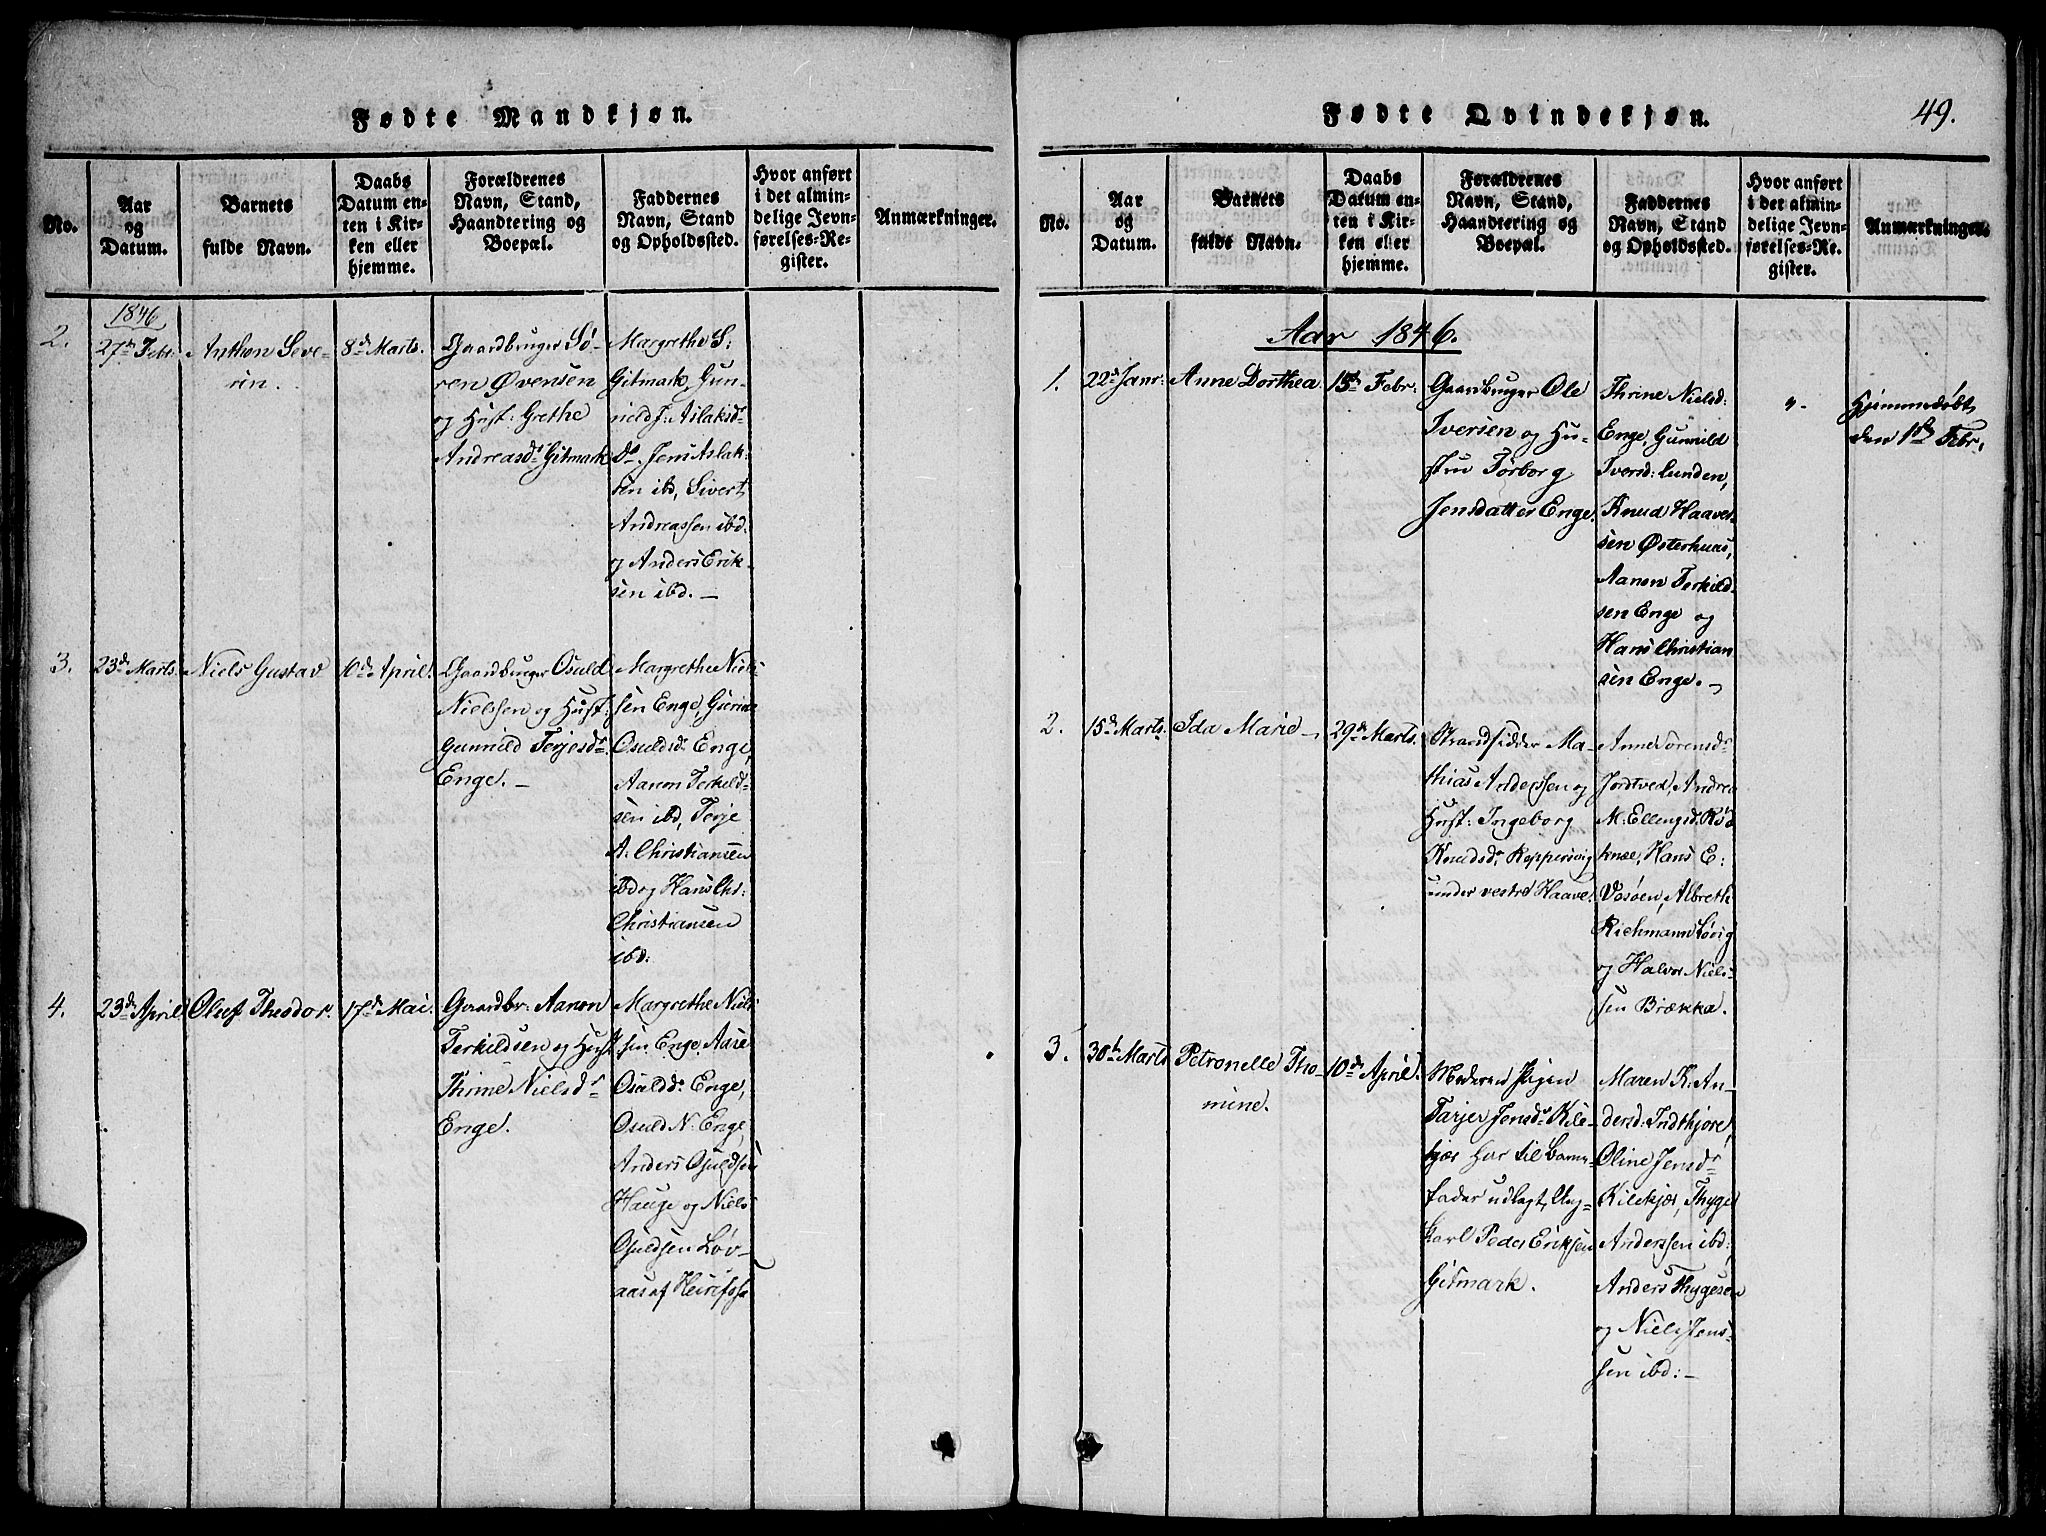 Fødte Mandkjøn.
No.
Aar
og
Datum.
Barnets
fulde Navn.
Daabs
Datum en-
ten i Kir-
ken eller
hjemme.
Forældrenes
Navn, Stand,
Haandtering og
Boepæl.
Faddernes
Navn, Stand
og Opholdssted.
Hvor anført
i det almin-
delige Jevn-
førelses-Re-
gister.
Anmærkninger.
1846
2.
27de Febr.
Anthon Seve-
rin.
8de Marts.
Gaardbruger Sø-
ren Øvensen
og Hust: Grethe
Andreasdr Gitmark
Margrethe S:
Gitmark, Gun-
nild J: Aslaksdr
do. Jens Aslak-
sen ibd, Sivert
Andreassen ibd.
og Anders Erik-
sen ibd. –
3.
23de Marts
Niels Gustav
10de April.
Gaardbruger Osuld
Nielssen og Hust:
Gunnild Terjesdr
Enge. –
Margrethe Niels-
sen Enge,
Osuldsdr Enge,
Aanon Terkild-
sen ibd, Terje
A: Christiansen
ibd og Hans Chr:
Christiansen
ibd:
4.
23de April
Oluf Theodor.
17de Mai.
Gaardbr: Aanon
Terkildsen og Hust
Thrine Nielsdr
Enge.
Margrethe Niels
sen Enge,
Osuldsdr Enge,
Osuld N: Enge,
Anders Osuldsen
Hauge og Niels
Osuldsen Løv-
aas af
Fødte Qvindekjøn.
49.
No.
Aar
og
Datum.
Barnets
fulde Navn.
Daabs
Datum en-
ten i Kir-
ken eller
hjemme.
Forældrenes
Navn, Stand,
Haandtering og
Boepæl.
Faddernes
Navn, Stand
og Opholdssted.
Hvor anført
i det almin-
delige Jevn-
førelses-Re-
gister.
Anmærkninger.
Aar 1846.
1.
22de Janr:
Anne Dorthea.
15de Febr:
Gaardbruger Ole
Iversen og Hu-
stru Torborg
Jensdatter Enge.
Thrine Nielsd:
Enge, Gunnild
Iversd: Lunden,
Knud Haavor-
sen Østerhuus,
Aanon Terkild-
sen Enge og
Hans Christian
sen Enge. –
Hjemmedøbt
den 1ste Febr.
2.
15de Marts.
Ida Marie –
29de Marts.
Strandsidder Ma-
thias Anderssen og
Hust: Ingeborg
Knudsdr Koppervig
under vestre Haave.
Anne Sørensdr
Jortved, Andrea
M: Ellingsd: Rød
knæ, Hans E:
Vosøen, Albreth
Richmann Løvig
og Halvor Niels-
sen Brække.
3.
30te Marts
Petronelle Tho-
mine.
10de April.
Moderen Pigen
Tarjer Jensdr Kile-
kjær har til Barne-
fader udlagt, Ung-
karl Peder Eriksen
Gitmark.
Maren K: An-
dersd: Indtkjøre,
Oline Jensdr
Kilekjær, Thyge
Anderssen ibd:
Anders Thygesen
og Niels Jens-
sen ibd: –